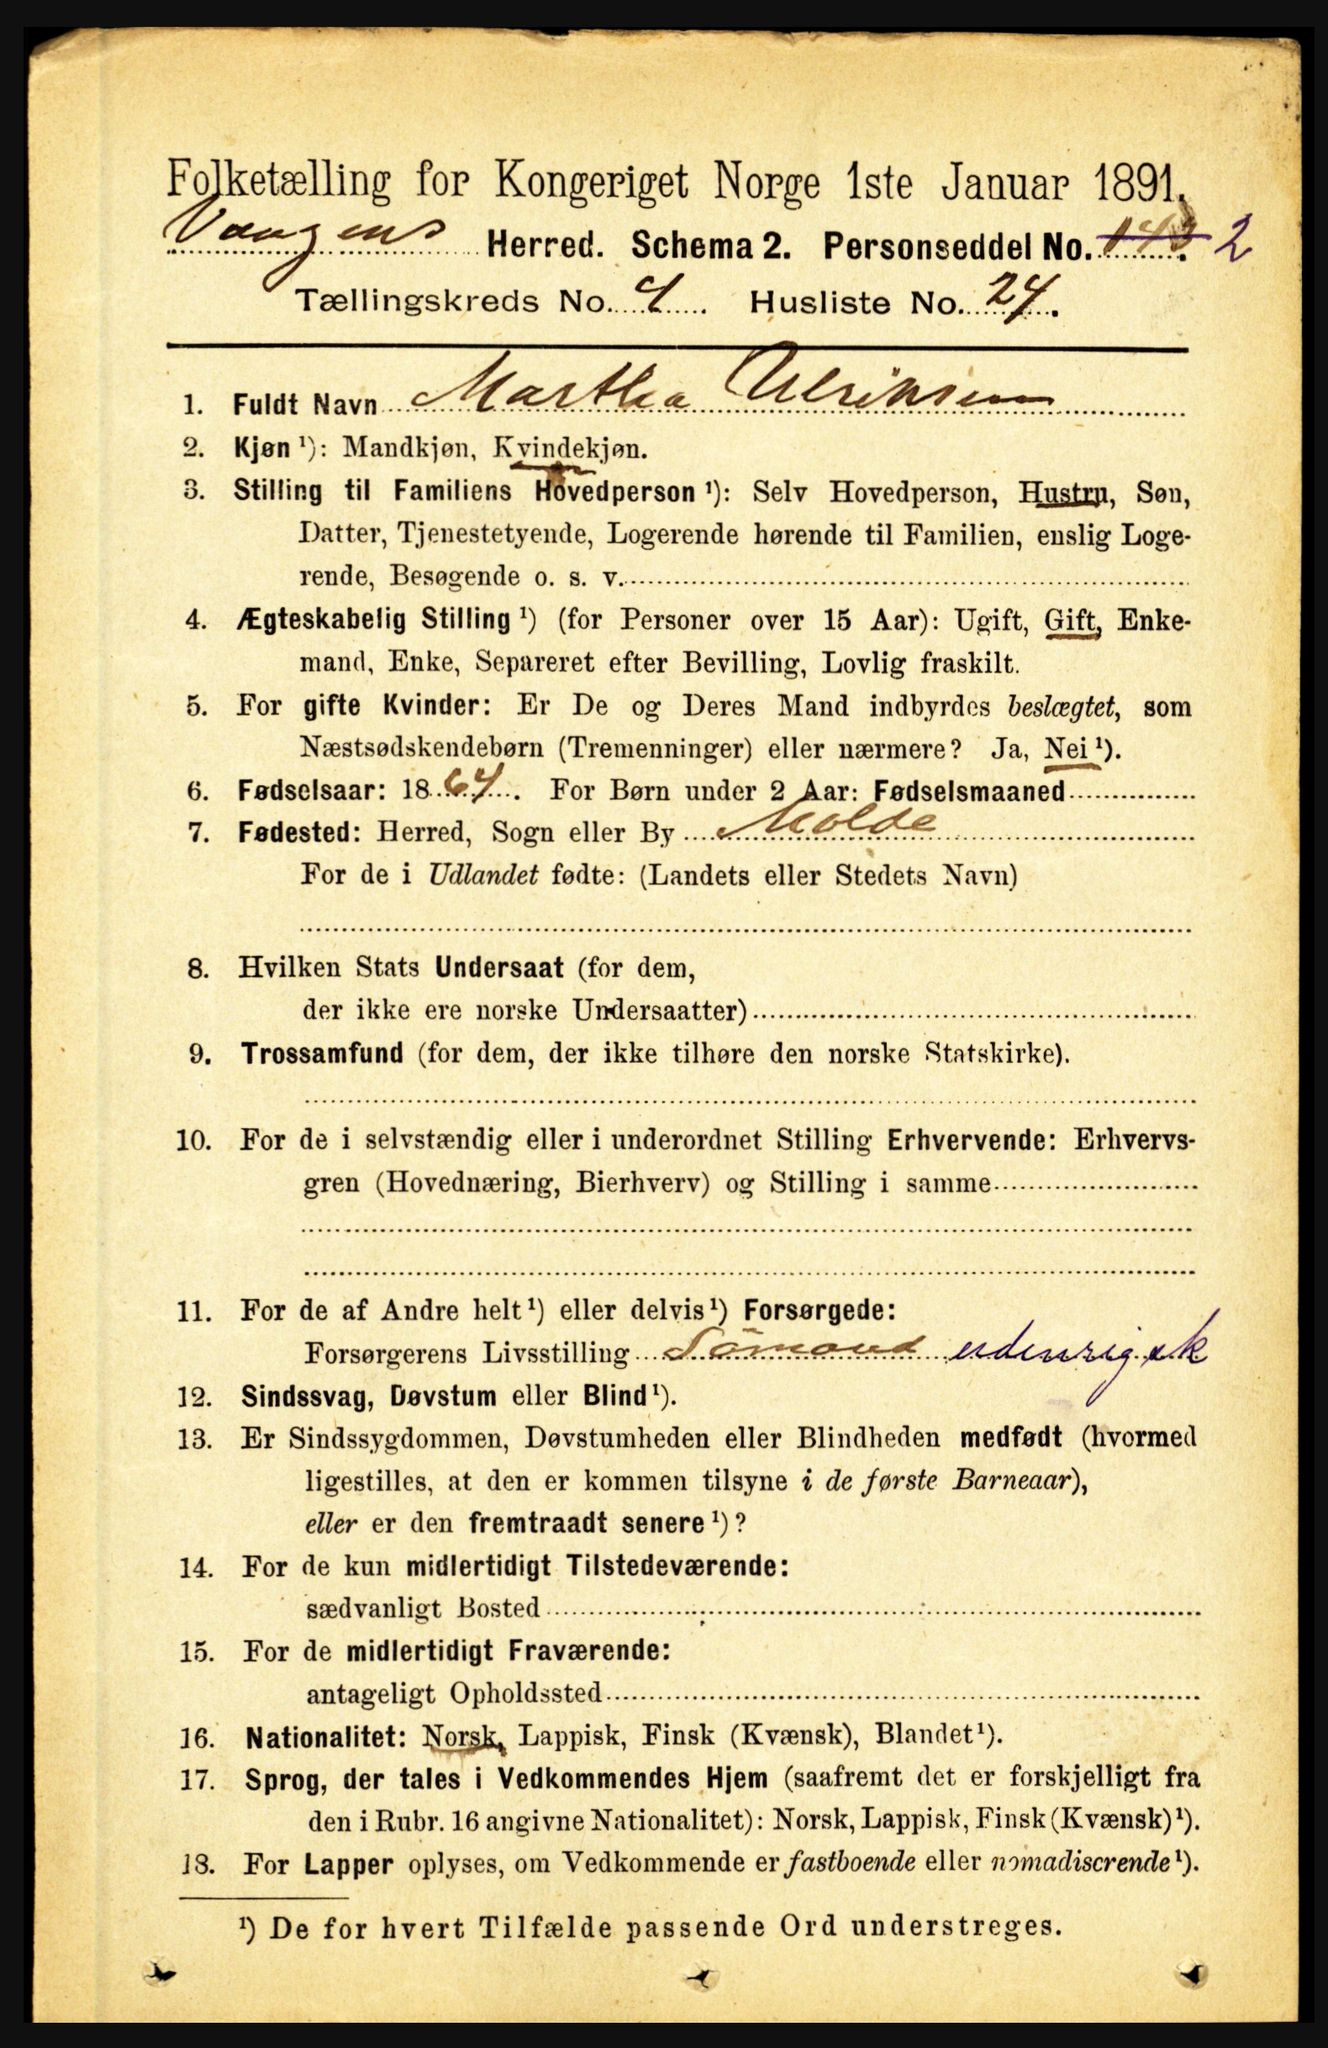 Folketælling for Kongeriget Norge 1ste Januar 1891.
Vaagens Herred. Schema 2. Personseddel No. 143 2
Tællingskreds No. 4. Husliste No. 24.
1. Fuldt Navn Martha Ulriksen
2. Kjøn ¹): Mandkjøn, Kvindekjøn.
3. Stilling til Familiens Hovedperson ¹): Selv Hovedperson, Hustru, Søn,
Datter, Tjenestetyende, Logerende hørende til Familien, enslig Loge-
rende, Besøgende o. s. v.
4. Ægteskabelig Stilling ¹) (for Personer over 15 Aar): Ugift, Gift, Enke-
mand, Enke, Separeret efter Bevilling, Lovlig fraskilt.
5. For gifte Kvinder: Er De og Deres Mand indbyrdes beslægtet, som
Næstsødskendebørn (Tremenninger) eller nærmere? Ja, Nei ¹).
6. Fødselsaar: 1864. For Børn under 2 Aar: Fødselsmaaned
7. Fødested: Herred, Sogn eller By Molde
For de i Udlandet fødte: (Landets eller Stedets Navn)
8. Hvilken Stats Undersaat (for dem,
der ikke ere norske Undersaatter)
9. Trossamfund (for dem, der ikke tilhøre den norske Statskirke).
10. For de i selvstændig eller i underordnet Stilling Erhvervende: Erhvervs-
gren (Hovednæring, Bierhverv) og Stilling i samme
11. For de af Andre helt ¹) eller delvis ¹) Forsørgede:
Forsørgerens Livsstilling Sömand udenrigsk
12. Sindssvag, Døvstum eller Blind ¹).
13. Er Sindssygdommen, Døvstumheden eller Blindheden medfødt (hvormed
ligestilles, at den er kommen tilsyne i de første Barneaar),
eller er den fremtraadt senere ¹)?
14. For de kun midlertidigt Tilstedeværende:
sædvanligt Bosted
15. For de midlertidigt Fraværende:
antageligt Opholdssted
16. Nationalitet: Norsk, Lappisk, Finsk (Kvænsk), Blandet ¹).
17. Sprog, der tales i Vedkommendes Hjem (saafremt det er forskjelligt fra
den i Rubr. 16 angivne Nationalitet): Norsk, Lappisk, Finsk (Kvænsk) ¹).
18. For Lapper oplyses, om Vedkommende er fastboende eller nomadiserende ¹).
¹) De for hvert Tilfælde passende Ord understreges.